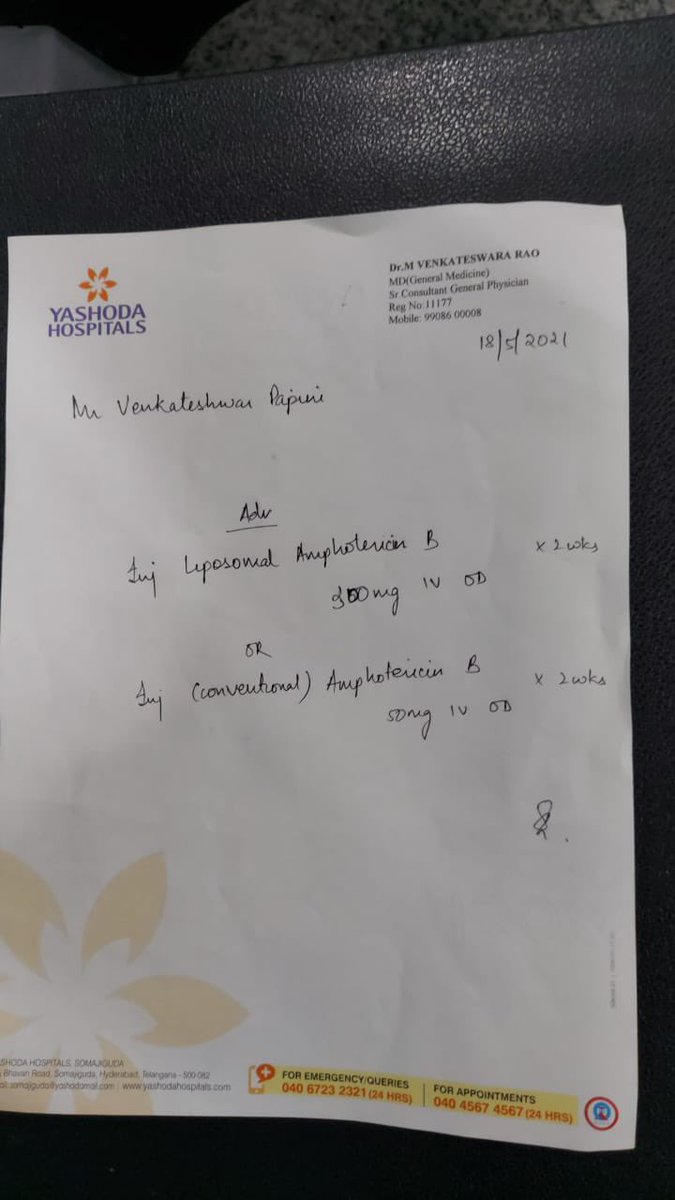 YASHODA
HOSPITALS
Dr.M VENKATESWARA RAO
MD(General Medicine)
Sr Consultant General Physician
Reg No:11177
Mobile: 99086 00008
18/5/2021
Mr Venkateshwar
Adv
Inj Liposomal Amphotericin B x 2 wks
mg IV OD
OR
Inj (conventional) Amphotericin B x 2 wks
50mg IV OD
SHODA HOSPITALS, SOMAJIGUDA
Bhavan Road, Somajiguda, Hyderabad, Telangana - 500 082
somajiguda@yashodamail.com | www.yashodahospitals.com
FOR EMERGENCY/QUERIES
040 6723 2321 (24 HRS)
FOR APPOINTMENTS
040 4567 4567 (24 HRS)